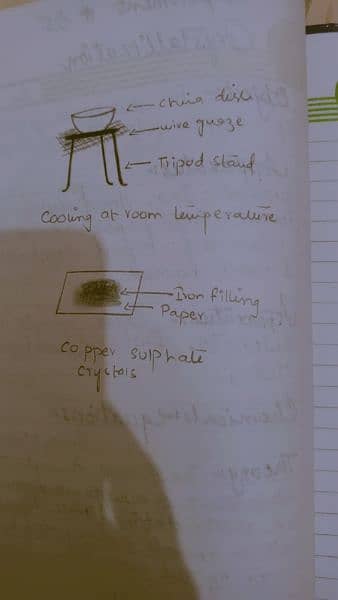 china dish
wire guaze
Tripod stand
Cooling at room temperature
Iron filling
Paper
Copper sulphate
crystals